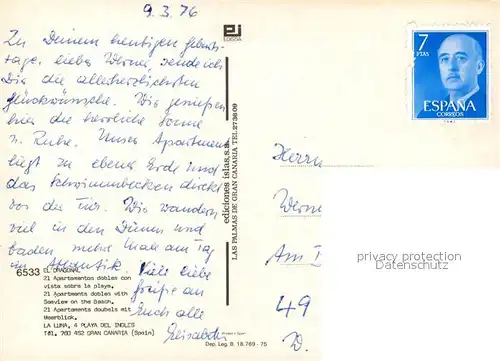 9.3.76
Zu Deinem heutigen Geburts-
tage, lieber Werner, sende ich
Dir die allerherzlichsten
Glückwünsche. Wir genießen
hier die herrliche Sonne
u. Ruhe. Unser Apartment
liegt zu ebener Erde und
das Schwimmbecken direkt
vor der Tür. Wir wandern
viel in den Dünen und
baden mehrere Male am Tag
im Atlantik. Viele liebe
Grüße an
Euch alle
Elisabeth
6533 EL DRAGONAL
21 Apartamentos dobles con
vista sobre la playa.
21 Apartments dobles with
Seaview on the Beach.
21 Apartments doubels mit
Meerblick.
LA LUNA, 4 PLAYA DEL INGLES
Tél. 760 452 GRAN CANARIA (Spain)
Dep. Leg. B. 18.769 - 75
ediciones islas, s.a.
LAS PALMAS DE GRAN CANARIA TEL. 273609
7
PTAS
ESPAÑA
CORREOS
Herrn
Werne
Am
49
D.
privacy protection
Datenschutz